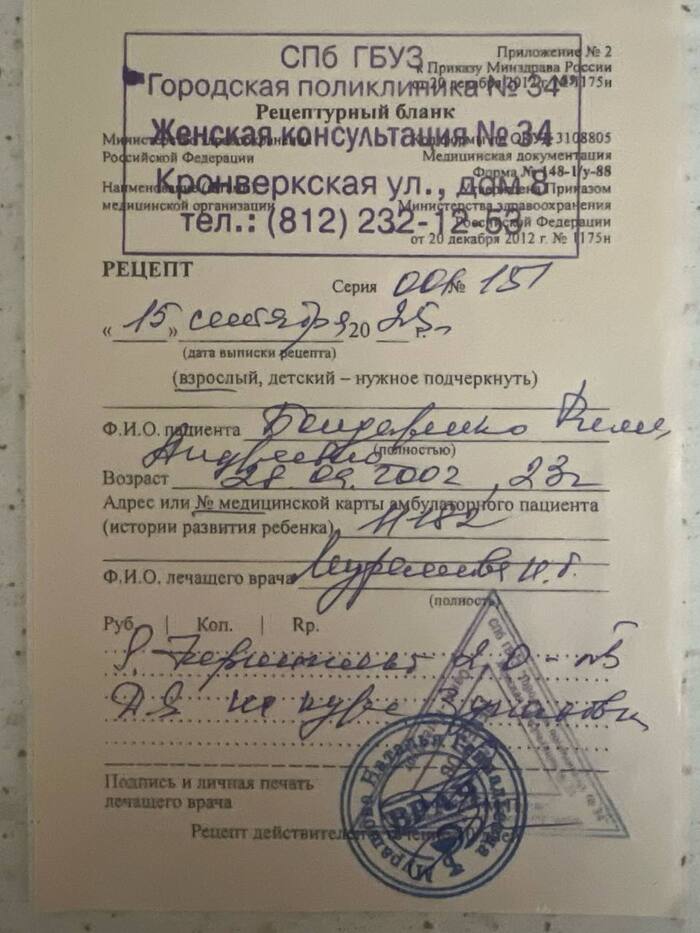 СПб ГБУЗ
Городская поликлиника № 34
Женская консультация № 34
Кронверкская ул., дом 8
тел.: (812) 232-12-53
Приложение № 2
к Приказу Минздрава России
от 20 декабря 2012 г. № 1175н
Рецептурный бланк
Министерство здравоохранения
Российской Федерации
Наименование
медицинской организации
3108805
Медицинская документация
Форма № 148-1/у-88
Приказом
Министерства здравоохранения
Российской Федерации
от 20 декабря 2012 г. № 1175н
РЕЦЕПТ
Серия 001 № 151
« 15 » сентября 20 25 г.
(дата выписки рецепта)
(взрослый, детский – нужное подчеркнуть)
Ф.И.О. пациента Бондаренко
(полностью)
Возраст 2002, 23г
Адрес или № медицинской карты амбулаторного пациента
(истории развития ребенка) 11182
Ф.И.О. лечащего врача Мурашова Н.Г.
(полностью)
Руб. | Коп. | Rp.
2,0
на курс
Подпись и личная печать
лечащего врача
ВРАЧ
Мурашова Наталья Геннадьевна
Рецепт действителен в течение 10 дней